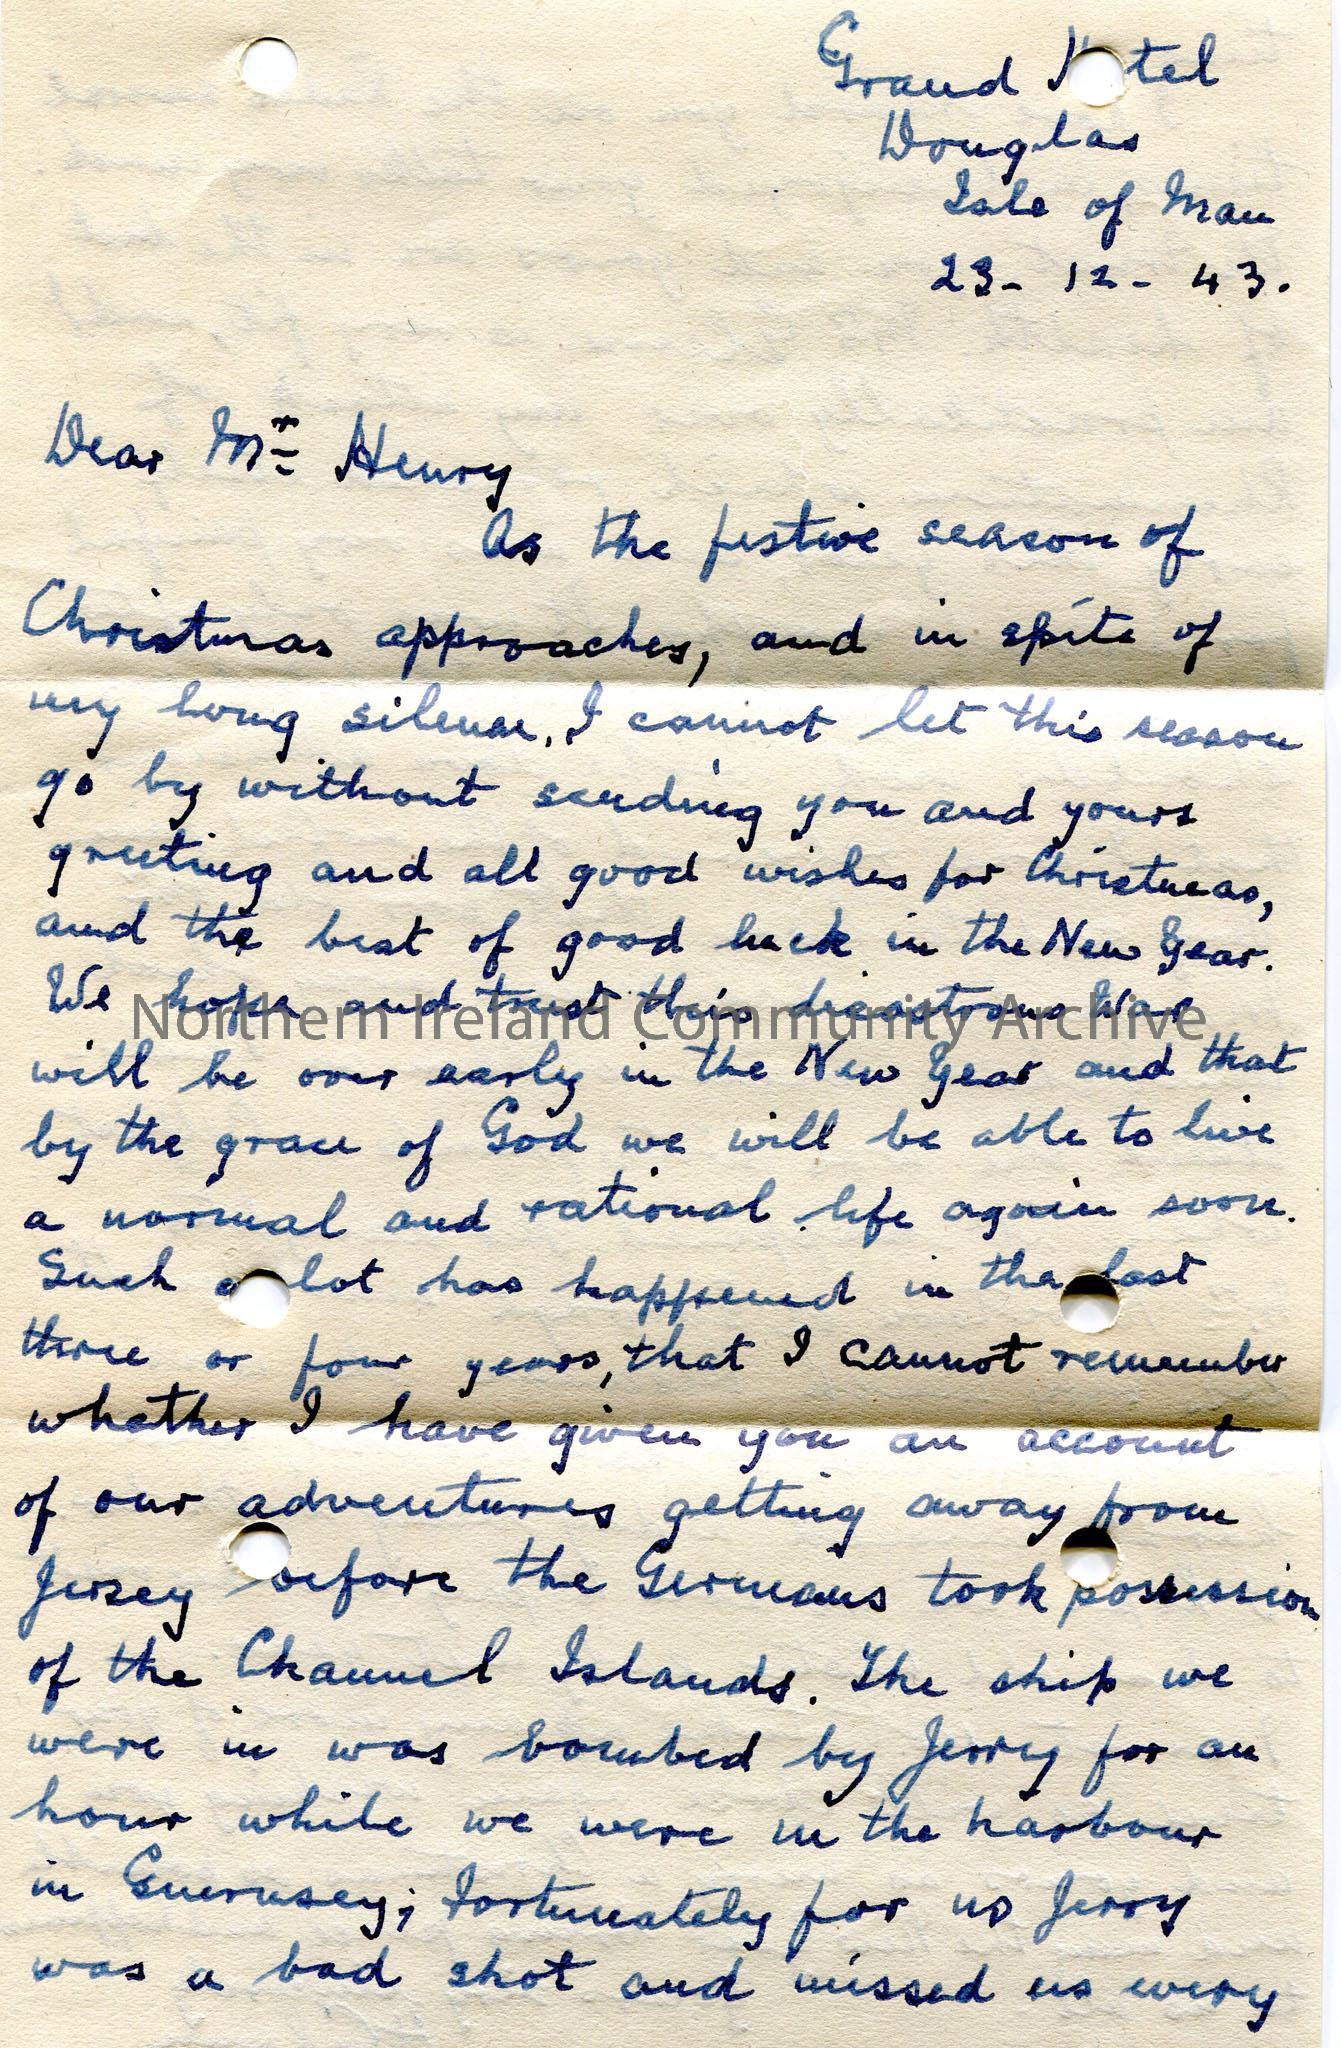 Grand Hotel
Douglas
Isle of Man
23 - 12 - 43.
Dear Mr Henry
As the festive season of
Christmas approaches, and in spite of
my long silence, I cannot let this season
go by without sending you and yours
greeting and all good wishes for Christmas,
and the best of good luck in the New Year.
We hope and trust this disastrous War
Northern Ireland Community Archive
will be over early in the New Year and that
by the grace of God we will be able to live
a normal and rational life again soon.
Such a lot has happened in the last
three or four years, that I cannot remember
whether I have given you an account
of our adventures getting away from
Jersey before the Germans took possession
of the Channel Islands. The ship we
were in was bombed by Jerry for an
hour while we were in the harbour
in Guernsey; fortunately for us Jerry
was a bad shot and missed us every